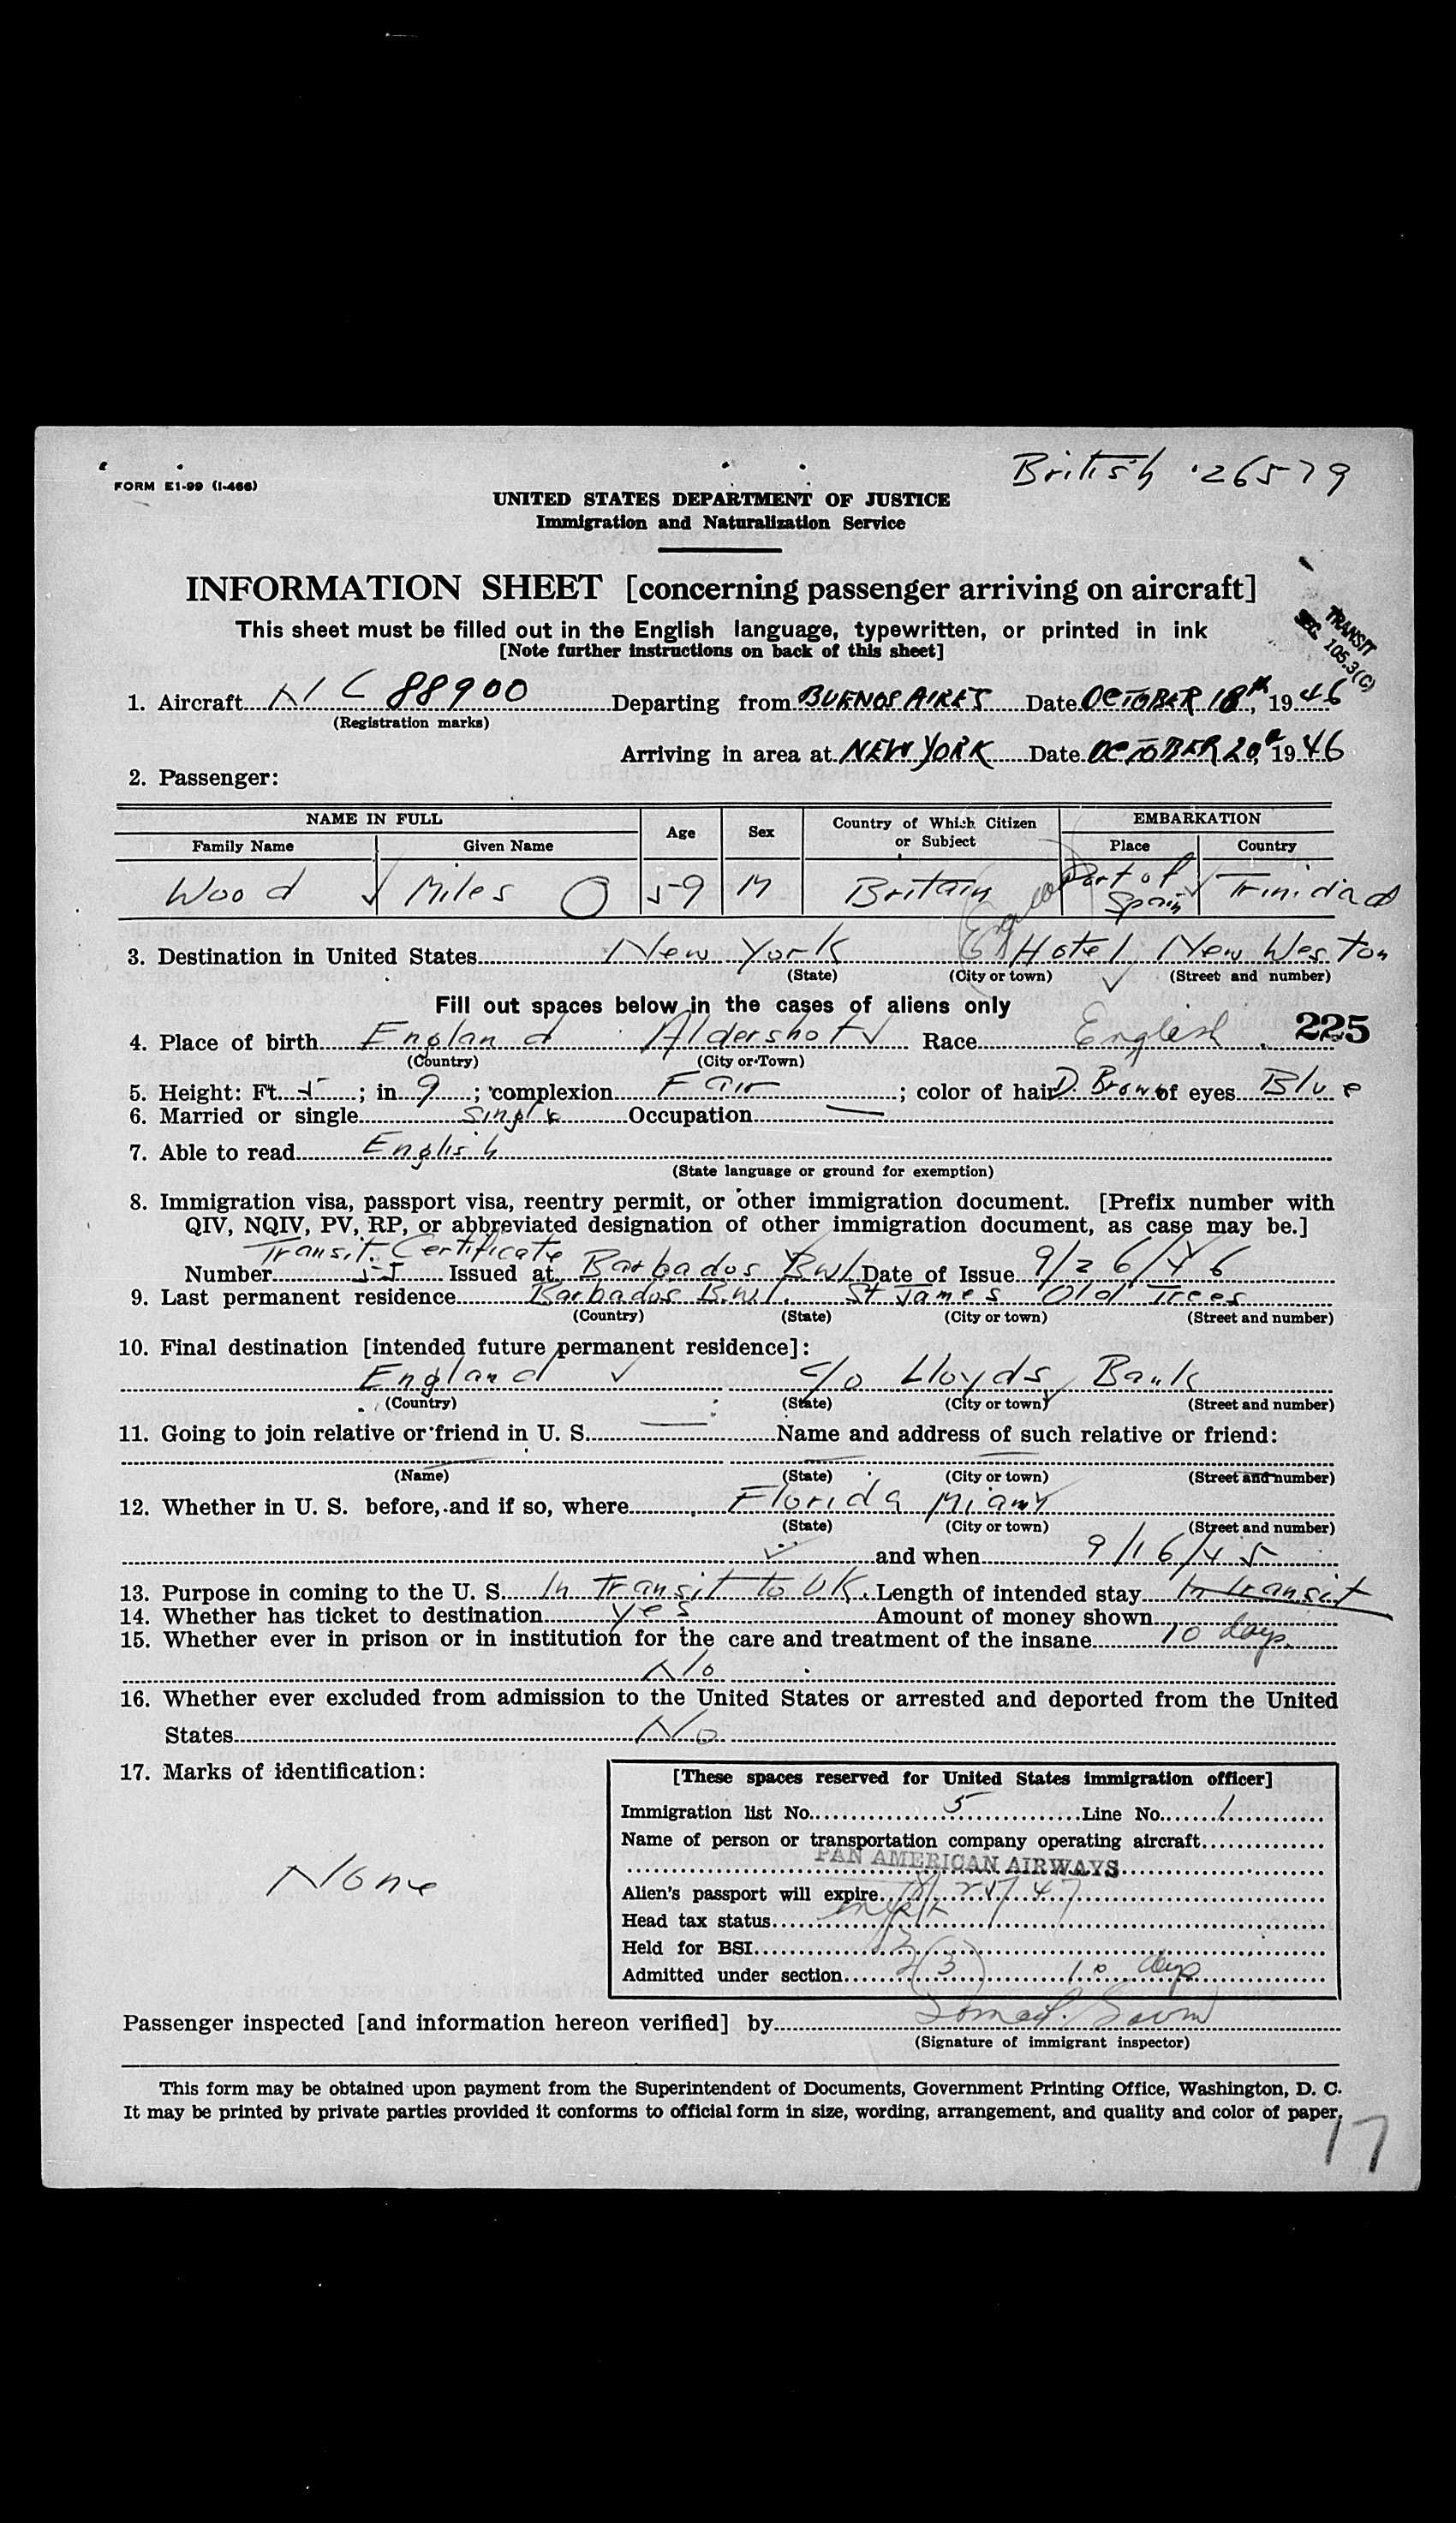 British 26579
FORM E1-99 (I-466)
UNITED STATES DEPARTMENT OF JUSTICE
Immigration and Naturalization Service
INFORMATION SHEET [concerning passenger arriving on aircraft]
This sheet must be filled out in the English language, typewritten, or printed in ink
[Note further instructions on back of this sheet]
TRANSIT
SEC. 105.3(C)
1. Aircraft NC 88900 Departing from BUENOS AIRES Date OCTOBER 18th, 1946
(Registration marks)
Arriving in area at NEW YORK Date OCTOBER 20th, 1946
2. Passenger:
NAME IN FULL Age Sex Country of Which Citizen or Subject EMBARKATION
Family Name Given Name Place Country
Wood Miles 59 M Britain Port of Spain Trinidad
3. Destination in United States New York Hotel New Weston
(State) (City or town) (Street and number)
Fill out spaces below in the cases of aliens only
225
4. Place of birth England Aldershot Race English
(Country) (City or Town)
5. Height: Ft. 5; in 9; complexion Fair; color of hair D. Brown of eyes Blue
6. Married or single Single Occupation —
7. Able to read English
(State language or ground for exemption)
8. Immigration visa, passport visa, reentry permit, or other immigration document. [Prefix number with
QIV, NQIV, PV, RP, or abbreviated designation of other immigration document, as case may be.]
Transit Certificate
Number 55 Issued at Barbados BWI Date of Issue 9/26/46
9. Last permanent residence Barbados B.W.I. St James Old Trees
(Country) (State) (City or town) (Street and number)
10. Final destination [intended future permanent residence]:
England c/o Lloyds Bank
(Country) (State) (City or town) (Street and number)
11. Going to join relative or friend in U. S. — Name and address of such relative or friend:
(Name) (State) (City or town) (Street and number)
12. Whether in U. S. before, and if so, where Florida Miamy
(State) (City or town) (Street and number)
and when 9/16/45
13. Purpose in coming to the U. S. In Transit to UK. Length of intended stay In transit
14. Whether has ticket to destination yes Amount of money shown
15. Whether ever in prison or in institution for the care and treatment of the insane 10 days
No
16. Whether ever excluded from admission to the United States or arrested and deported from the United
States No
17. Marks of identification:
None
[These spaces reserved for United States immigration officer]
Immigration list No. 5 Line No. 1
Name of person or transportation company operating aircraft
PAN AMERICAN AIRWAYS
Alien's passport will expire
Head tax status
Held for BSI
Admitted under section 3(3) 10 days
Passenger inspected [and information hereon verified] by
(Signature of immigrant inspector)
This form may be obtained upon payment from the Superintendent of Documents, Government Printing Office, Washington, D. C.
It may be printed by private parties provided it conforms to official form in size, wording, arrangement, and quality and color of paper.
17